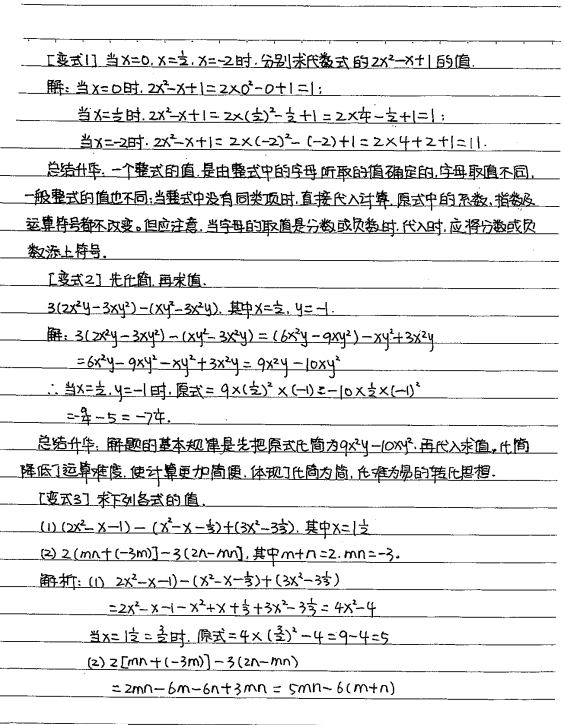 [变式1] 当x=0, x=½, x=-2时,分别求代数式的2x²-x+1的值.
解:当x=0时,2x²-x+1=2×0²-0+1=1;
当x=½时,2x²-x+1=2×(½)²-½+1=2×¼-½+1=1;
当x=-2时,2x²-x+1=2×(-2)²-(-2)+1=2×4+2+1=11.
总结升华:一个整式的值,是由整式中的字母所取的值确定的,字母取值不同,
一般整式的值也不同;当整式中没有同类项时,直接代入计算,原式中的系数,指数及
运算符号都不改变。但应注意,当字母的取值是分数或负数时,代入时,应将分数或负
数添上符号.
[变式2] 先化简,再求值.
3(2x²y-3xy²)-(xy²-3x²y),其中x=½,y=-1.
解:3(2x²y-3xy²)-(xy²-3x²y)=(6x²y-9xy²)-xy²+3x²y
=6x²y-9xy²-xy²+3x²y=9x²y-10xy²
∴当x=½,y=-1时,原式=9×(½)²×(-1)-10×½×(-1)²
=-9/4-5=-7¼.
总结升华:解题的基本规律是先把原式化简为9x²y-10xy²,再代入求值,化简
降低了运算难度,使计算更加简便,体现了化简为简,化难为易的转化思想.
[变式3] 求下列各式的值.
(1)(2x²-x-1)-(x²-x-⅓)+(3x²-3⅓),其中x=1½
(2)2[mn+(-3m)]-3(2n-mn),其中m+n=2,mn=-3.
解析:(1) 2x²-x-1)-(x²-x-⅓)+(3x²-3⅓)
=2x²-x-1-x²+x+⅓+3x²-3⅓=4x²-4
当x=1½=3/2时,原式=4×(3/2)²-4=9-4=5
(2)2[mn+(-3m)]-3(2n-mn)
=2mn-6m-6n+3mn=5mn-6(m+n)